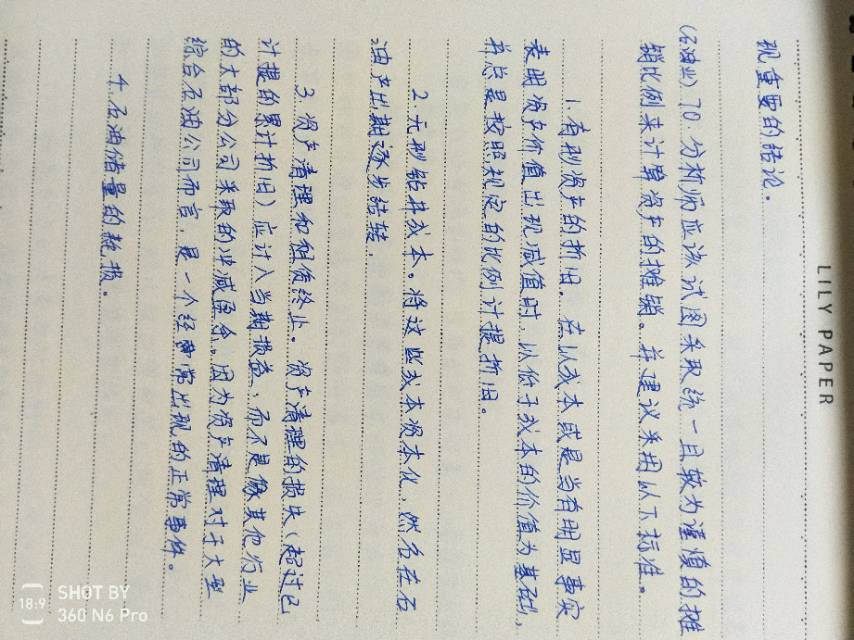 LILY PAPER
现重要的结论。
(石油业) 70. 分析师应该试图采取统一且较为谨慎的摊
销比例来计算资产的摊销。并建议采用以下标准。
1. 有形资产的折旧. 在以成本或是当有明显事实
表明资产价值出现减值时,以低于成本的价值为基础,
并总是按照规定的比例计提折旧。
2. 无形钻井成本。将这些成本资本化,然后在石
油产出期逐步结转.
3. 资产清理和租赁终止。资产清理的损失(超过已
计提的累计折旧)应计入当期损益,而不是像其他行业
的大部分公司采取的冲减盈余。因为资产清理对于大型
综合石油公司而言,是一个经常出现的正常事件。
4. 石油储量的耗损。
18:9
SHOT BY
360 N6 Pro